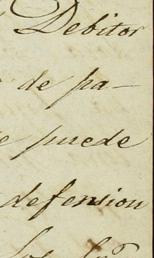 Debitor
de pa-
e puede
defension